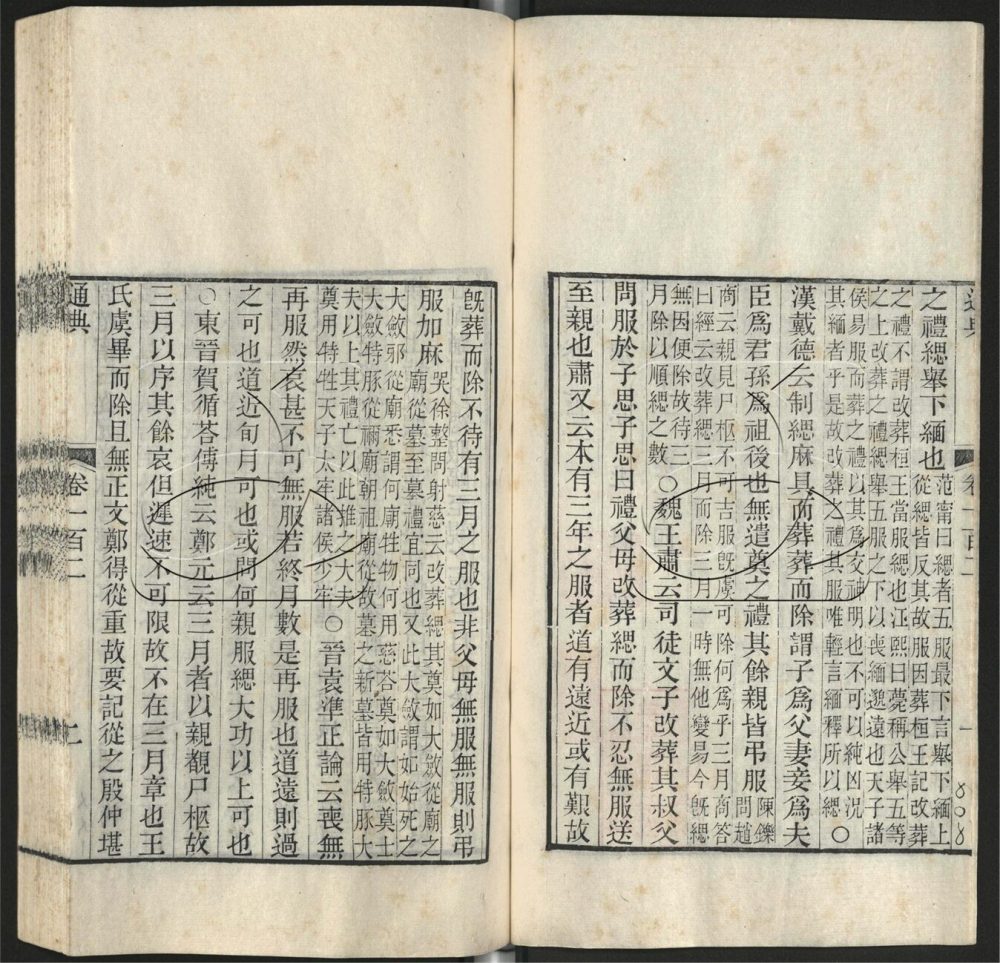 通典
卷一百二
一
之禮緦舉下緬也范甯曰緦者五服最下言舉下緬上
從緦皆反其故服因葬桓王記改葬
之禮不謂改葬桓王當服緦也江熙曰葬稱公舉五等
之上改葬之禮緦舉五服之下以喪緬邈遠也天子諸
侯易服而葬之禮以其爲交神明也不可以純凶況
其緬者乎是故改葬之禮其服唯輕言緬釋所以緦○
漢戴德云制緦麻具而葬葬而除謂子爲父妻妾爲夫
臣爲君孫爲祖後也無遣奠之禮其餘親皆弔服陳鑠
問趙
商云親見尸柩不可吉服既虞可除何爲乎三月商答
曰經云改葬緦三月而除三月一時無他變易今既緦
無因便除故待三
月除以順緦之數○魏王肅云司徒文子改葬其叔父
問服於子思子思曰禮父母改葬緦而除不忍無服送
至親也肅又云本有三年之服者道有遠近或有艱故
既葬而除不待有三月之服也非父母無服無服則弔
服加麻哭徐整問射慈云改葬緦其奠如大斂從廟之
廟從墓至墓禮宜同也又此大斂謂如始死之
大斂邪從廟悉謂何廟牲物何用慈荅奠如大斂奠士
大斂特豚從禰廟朝祖廟從故墓之新墓皆用特豚大
夫以上其禮亡以此推之大夫
奠用特牲天子太牢諸侯少牢○晉袁準正論云喪無
再服然哀甚不可無服若終月數是再服也道遠則過
之可也道近旬月可也或問何親服緦大功以上可也
○東晉賀循荅傅純云鄭元云三月者以親覩尸柩故
三月以序其餘哀但遲速不可限故不在三月章也王
氏虞畢而除且無正文鄭得從重故要記從之殷仲堪
通典
卷一百二